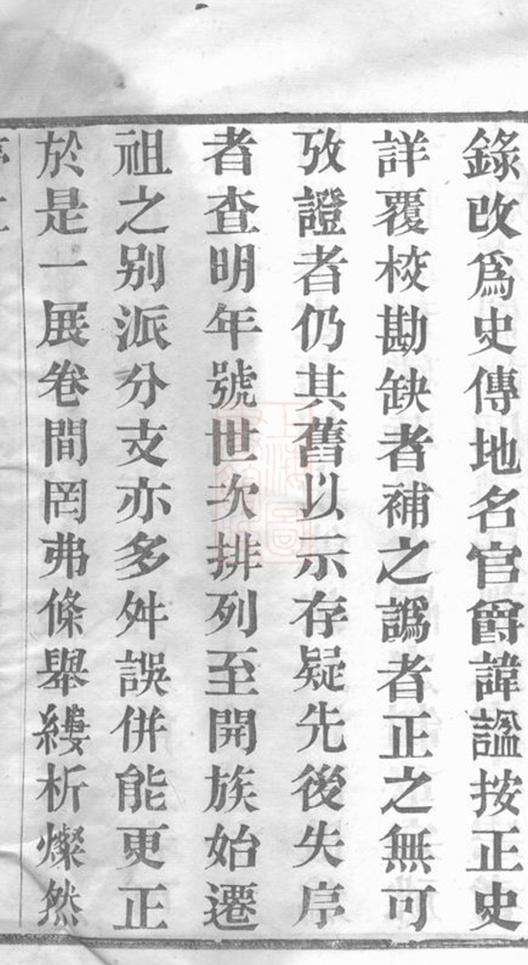 錄改爲史傳地名官爵諱諡按正史
詳覆校勘缺者補之譌者正之無可
攷證者仍其舊以示存疑先後失序
者查明年號世次排列至開族始遷
祖之别派分支亦多舛誤併能更正
於是一展卷間罔弗條舉縷析燦然